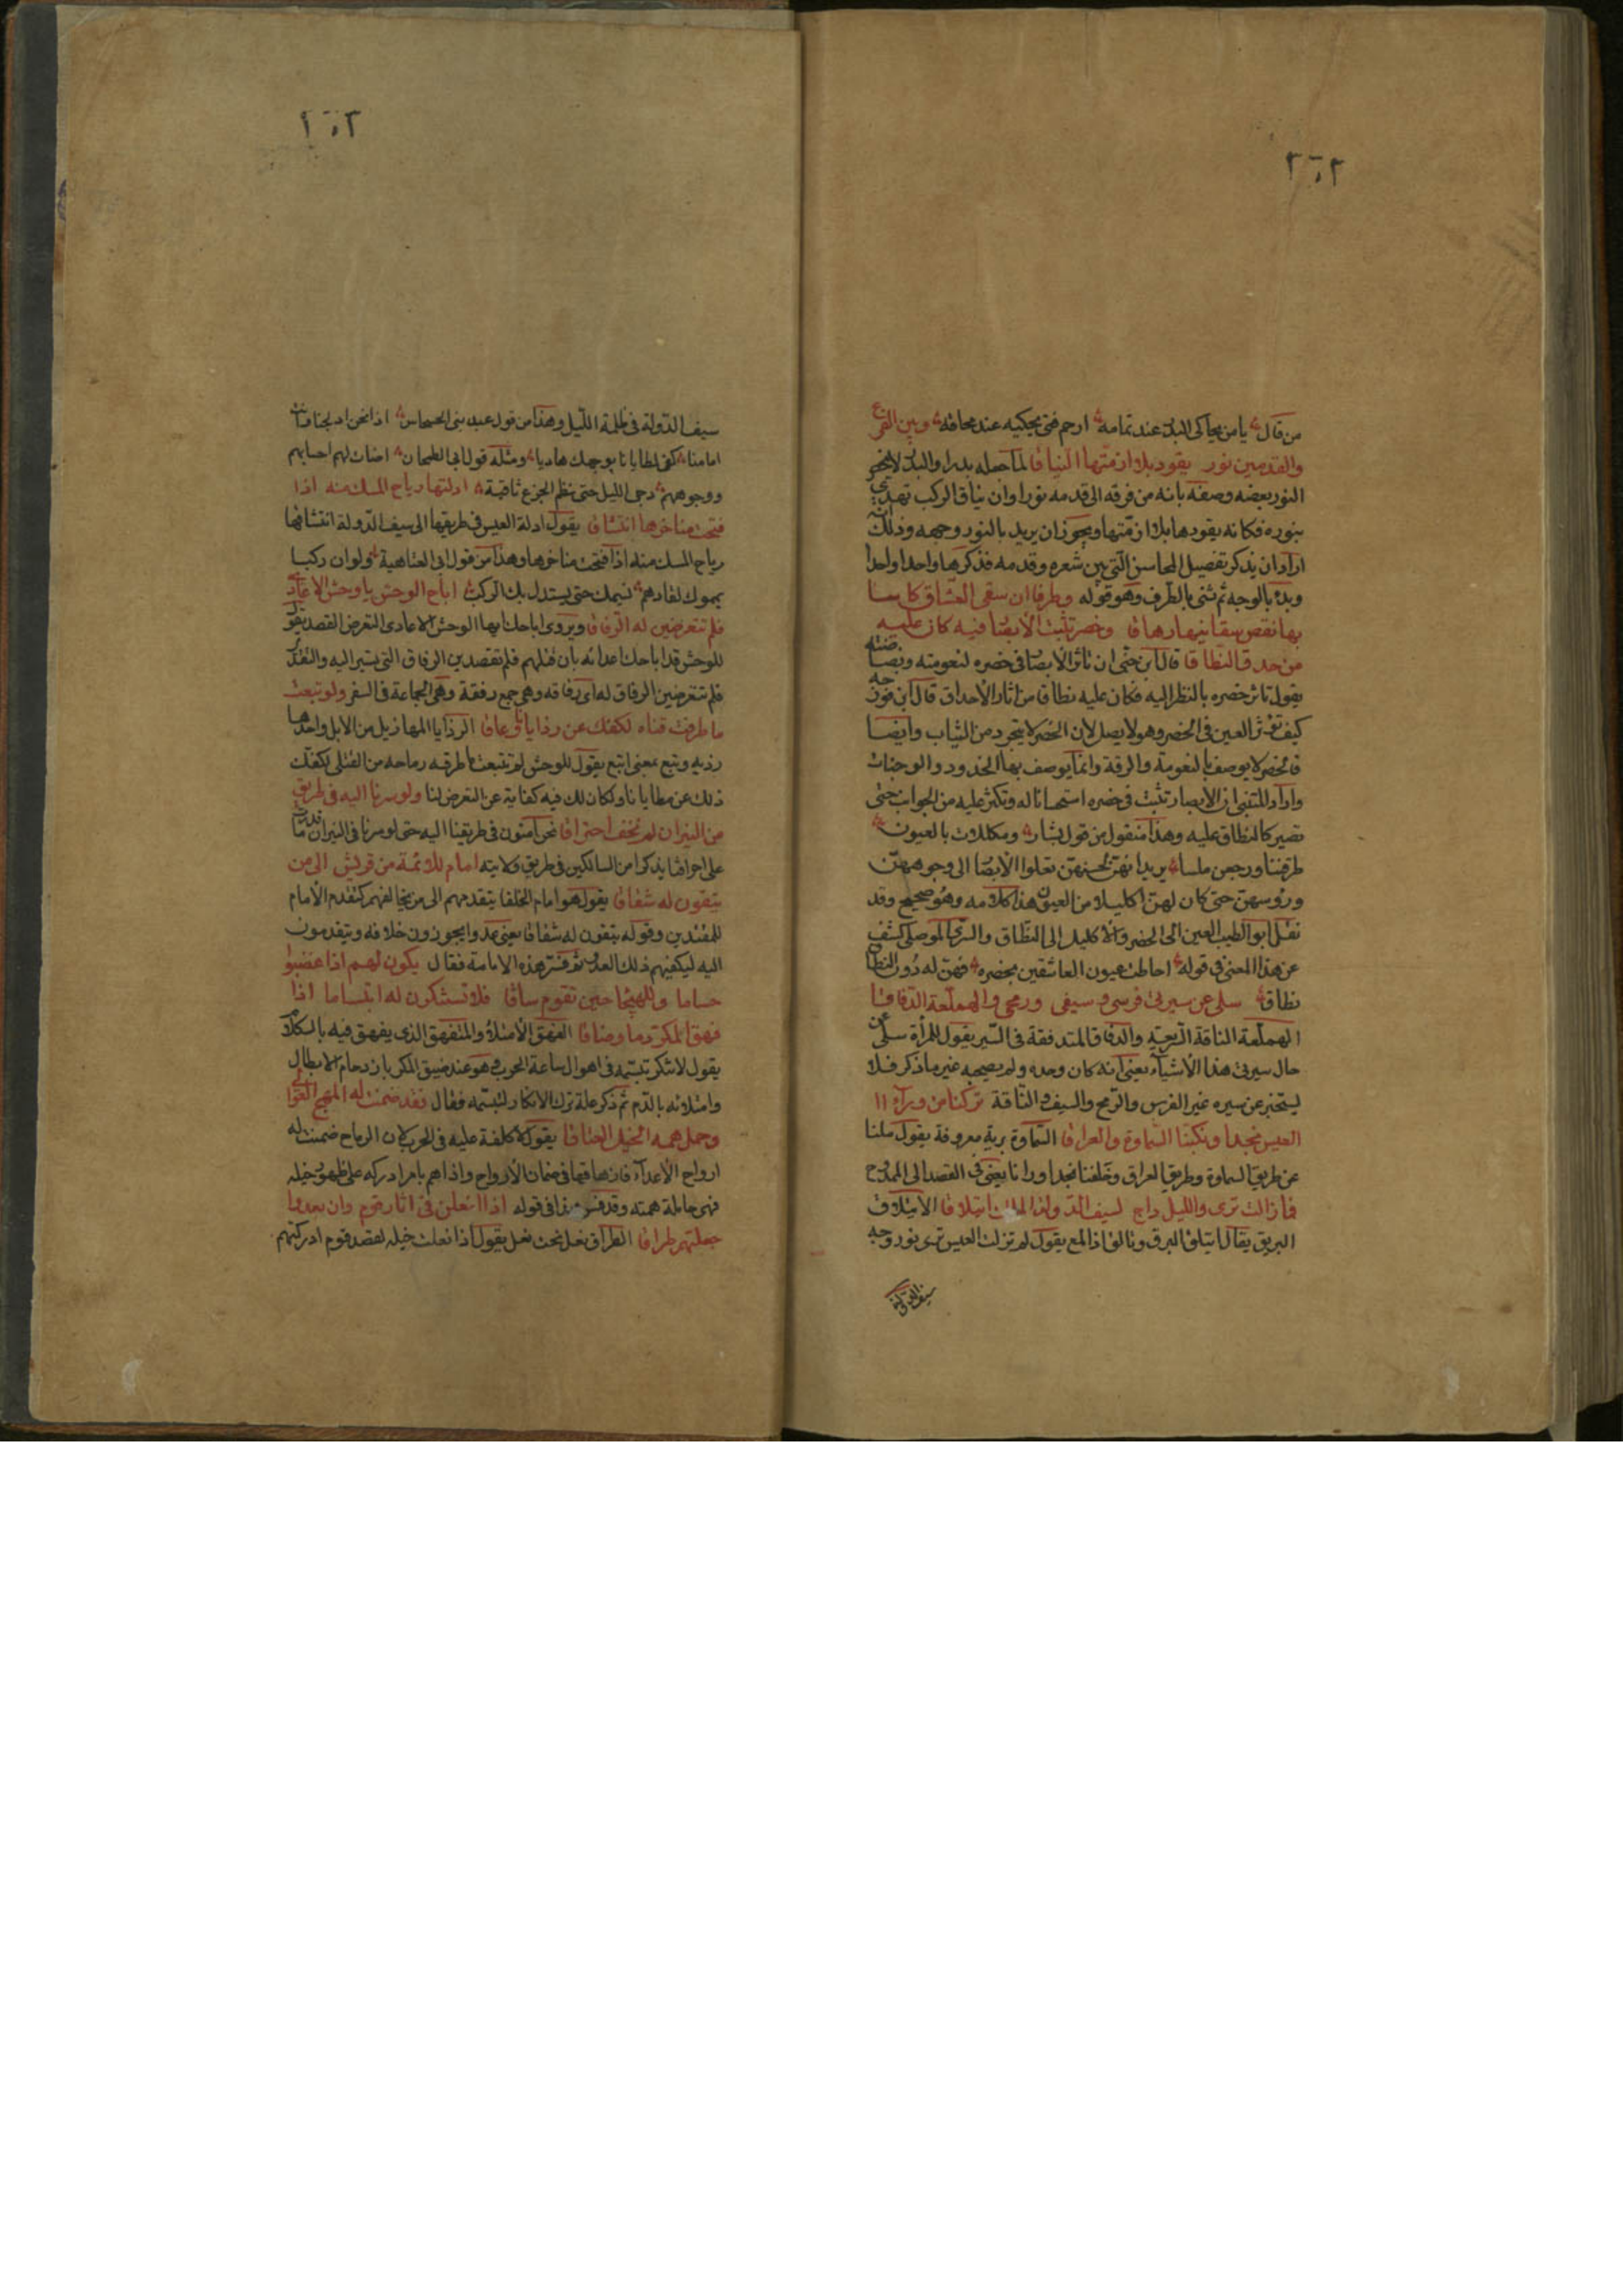 ٢٠٢
من قال يا من يحاكى البدر عند تمامه ارحم فتى يحكيه عند محاقه وبين الفرع
والقدمين نور يقود بلا ازمتها النياقا لما جعله بدرا والبدر لا يتجزء
النور بعضه وصفه بانه من فرقه الى قدمه نورا وان نياق الركب تهتدى
بنوره فكانه يقودها بلا ازمّتها ويجوز ان يريد بالنور وجهه وذلك انه
اراد ان يذكر تفصيل المحاسن الّتى بين شعره وقدمه فذكرها واحدا واحدا
وبدء بالوجه ثم ثنى بالطّرف وهو قوله وطرفا ان سقى العشّاق كاسا
بها نقص سقانيها دهاقا وخصر تثبت الأبصار فيه كان عليه
من حدق النطاقا قال ابن جنى ان تاثر الأبصار فى خصره لنعومته وبضاضته
يقول تاثر خصره بالنظر اليه فكان عليه نطاقا من اثار الأحداق قال ابن فورجه
كيف تؤثر العين فى الخصر وهو لا يصل لان الخصر لا يتجرد من الثياب وايضا
فالخصر لا يوصف بالنعومة والرقة وانما يوصف بها الخدود والوجنات
واراد المتنبى ان الأبصار تثبت فى خصره استحسانا له وتكثر عليه من الجوانب حتى
تصير كالنطاق عليه وهذا منقول من قول بشار ومكللات بالعيون
طرقننا ورجعن ملسا يريد انهنّ لحسنهنّ تعلوا الأبصار الى وجوههنّ
ورؤسهنّ حتى كان لهنّ اكليلا من العيون هذا كلامه وهو صحيح وقد
نقل ابو الطيب العين الى الخصر والاكليل الى النطاق والسرى الموصلى كشف
عن هذا المعنى فى قوله احاطت عيون العاشقين بخصره فهن له دون النطاق
نطاق سلى عن سيرتى فرسى وسيفى ورمحى والهملّعة الدّفاقا
الهملّعة الناقة السريعة والدفاق المتدفقة فى السّير يقول للمرأة سلى عن
حال سيرتى هذا الأشياء يعنى انه كان وحده ولم يصحبه غير ما ذكر فلا
يستخبر عن سيره غير الفرس والرّمح والسيف والنّاقة تركنا من وراء ا
العيس نجدا ونكبنا السّماوة والعراقا السّماوة برية معروفة يقول ملنا
عن طريق السماوة وطريق العراق وخلفنا نجدا ورانا يعنى فى القصد الى الممدوح
فما زالت ترى والليل داج لسيف الدّولة الملك ائتلاقا الائتلاق
البريق يقال ائتلق البرق وتالق اذا لمع يقول لم تزل العيس ترى نور وجه
سيف الدولة
سيف الدّولة فى ظلمة اللّيل وهذا من قول عبد بنى الحسحاس اذا نحن ادلجنا وانت
امامنا كفى لمطايانا بوجهك هاديا ومثله قول ابى الطمحان اضات لهم احسابهم
ووجوههم دجى الليل حتى نظم الجزع ثاقبة ادلتها رياح المسك منه اذا
فتحت مناخرها انتشاقا يقول ادلة العيس فى طريقها الى سيف الدّولة انتشاقها
رياح المسك منه اذا فتحت مناخرها وهذا من قول ابى العتاهية ولو ان ركبا
يمموك لقادهم نسيمك حتى يستدل بك الركب اباح الوحش يا وحش الاعادى
فلم تتعرضين له الرفاقا ويروى اباحك ايها الوحش الاعادى التعرض القصد يقول
للوحش قد اباحك اعدائه بان قتلهم فلم تقصدين الرفاق التى تسير اليه والتقدير
فلم تتعرضين الرفاق له اى رفاقه وهى جمع رفقة وهى الجماعة فى السفر ولو تبعت
ما طرحت قناه لكفك عن رذايانا وعاقا الرذايا المهازيل من الابل واحدها
رذيه وتبع بمعنى اتبع يقول للوحش لو تتبعت ما طرحه رماحه من القتلى لكفك
ذلك عن مطايانا ولكان لك فيه كفاية عن التعرض لنا ولو سرنا اليه فى طريق
من النيران لم نخف احتراقا نحن آمنون فى طريقنا اليه حتى لو سرنا فى النيران ما قدرت
على احراقنا يذكر امن السالكين فى طريق ولايته امام للائمة من قريش الى من
يتقون له شقاقا يقول هو امام الخلفا يتقدمهم الى من يخالفهم كتقدم الأمام
للمقتدين وقوله يتقون له شقاقا يعنى عدوا يحوزون خلافه ويتقدمون
اليه ليكفيهم ذلك العدو ثم فسر هذه الامامة فقال يكون لهم اذا غضبوا
حساما وللهيجا حين تقوم ساقا فلا تستنكرن له ابتساما اذا
فهق المكر دما وضاقا الفهق الأمتلاء والمتفهق الذى يفهق فيه بالكلام
يقول لا تنكر تبسّمه فى اهوال ساعة الحرب وهو عند ضيق المكر بازدحام الابطال
وامتلائه بالدّم ثم ذكر علة ترك الانكار لتبسّمه فقال فقد ضمنت له المهج العوالى
وحمل همه الخيل العتاقا يقول لا كلفة عليه فى الحرب لان الرماح ضمنت له
ارواح الأعداء فارماحه فى ضمان الأرواح واذا هم بامر ادركه على ظهور خيله
فهى حاملة همته وقد فسر هذا فى قوله اذا انعلن فى اثار قوم وان بعدوا
جعلتهم طراقا الطراق نعل تحت نعل يقول اذا نعلت خيله لقصد قوم ادركتهم